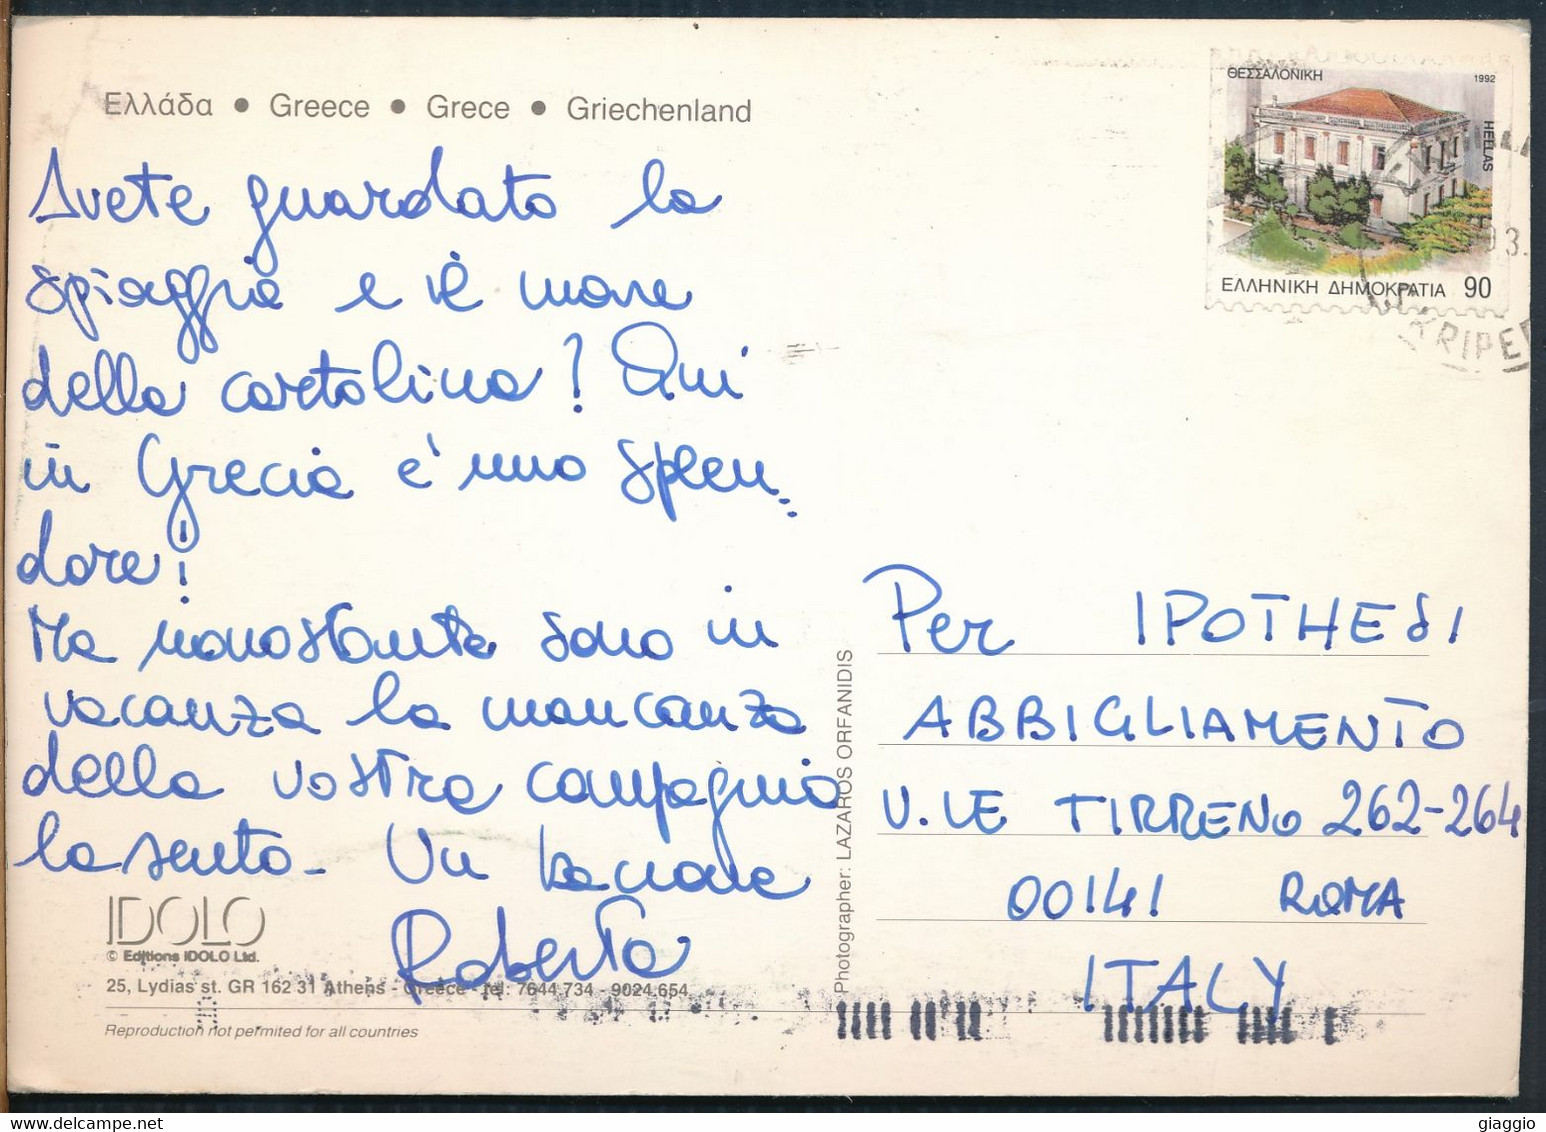 Ελλάδα • Greece • Grece • Griechenland
Avete guardato la
spiaggia e il mare
della cartolina! Qui
in Grecia è uno splen-
dore!
Ma nonostante sono in
vacanza la mancanza
della vostra compagnia
la sento - Un bacione
Roberta
IDOLO
© Editions IDOLO Ltd.
25, Lydias st. GR 162 31 Athens - Greece - tel: 7644 734 - 9024 654
Reproduction not permited for all countries
Photographer: LAZAROS ORFANIDIS
ΘΕΣΣΑΛΟΝΙΚΗ 1992
HELLAS
ΕΛΛΗΝΙΚΗ ΔΗΜΟΚΡΑΤΙΑ 90
Per IPOTHESI
ABBIGLIAMENTO
V.LE TIRRENO 262-264
00141 ROMA
ITALY
giaggio